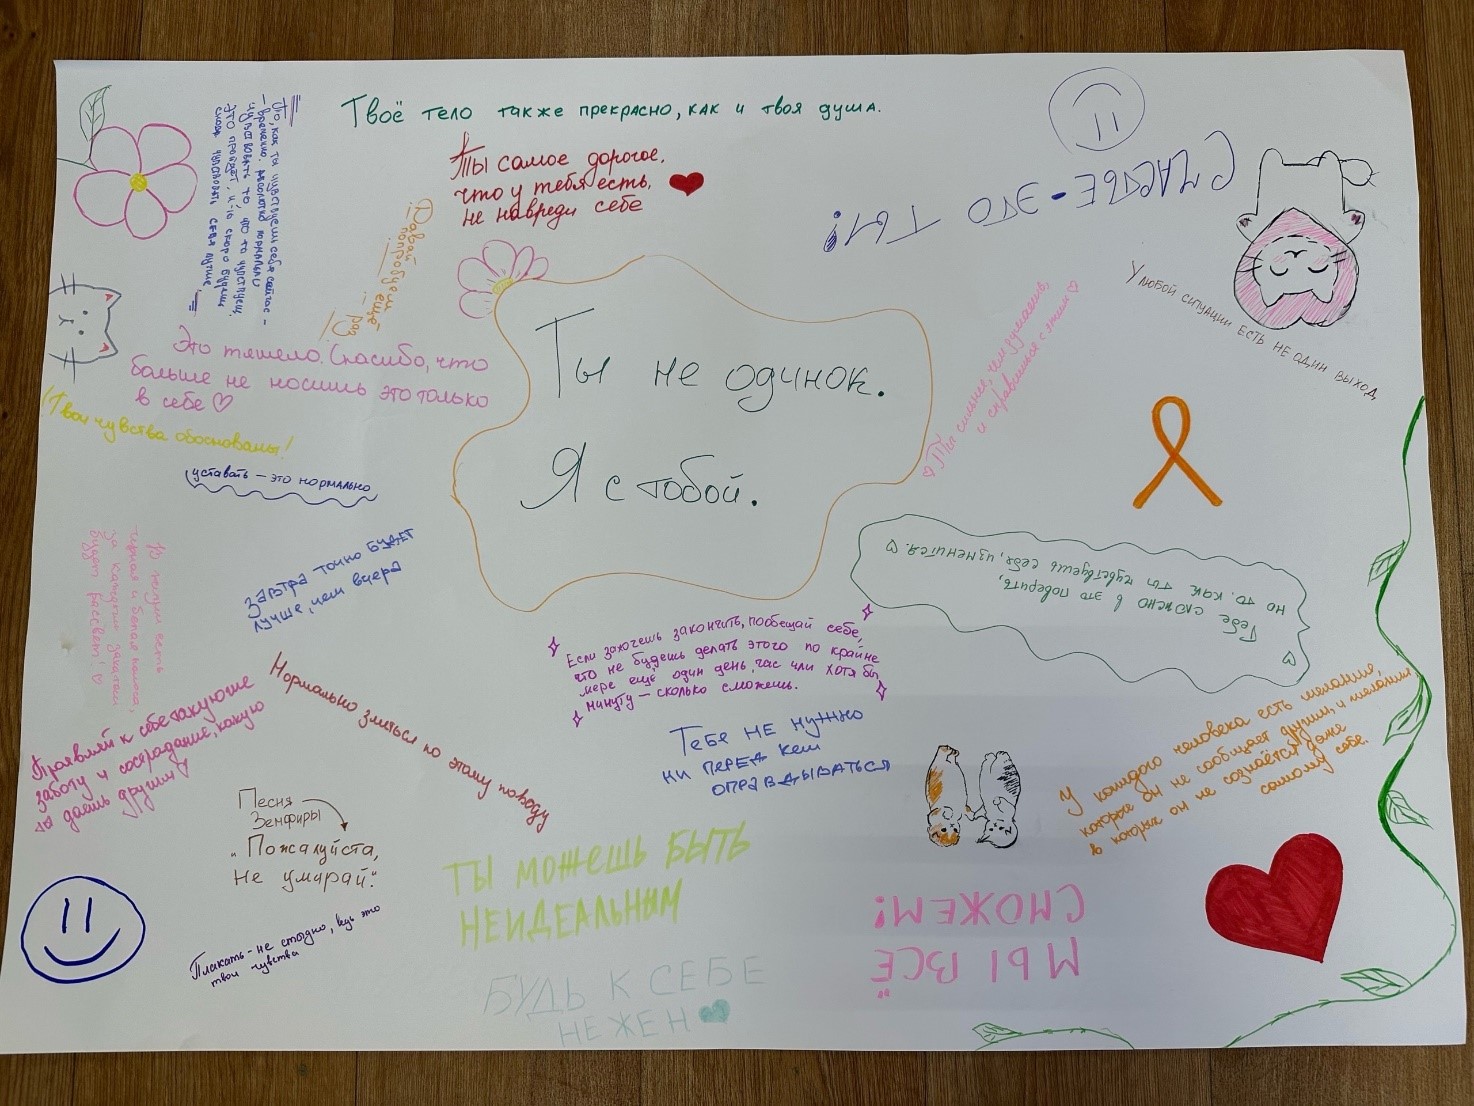 Твоё тело также прекрасно, как и твоя душа.
Ты самое дорогое,
что у тебя есть,
не навреди себе
То, как ты чувствуешь себя сейчас –
– временно. Абсолютно нормально
чувствовать то, что ты чувствуешь.
Это пройдёт, и ты скоро будешь
снова чувствовать себя лучше.
Давай
попробуем
ещё
раз
Счастье - это ты!
У любой ситуации есть не один выход.
Это тяжело. Спасибо, что
больше не носишь это только
в себе ♡
Твои чувства обоснованы!
уставать – это нормально
Ты не одинок.
Я с тобой.
♡ Ты сильнее, чем думаешь,
и справишься с этим ♡
Тебе сложно в это поверить,
но то, как ты чувствуешь себя, изменится. ♡
В жизни есть
чёрная и белая полоса,
за каждым закатом
будет рассвет! ♡
Завтра точно будет
лучше, чем вчера
Если захочешь закончить, пообещай себе,
что не будешь делать этого по крайне
мере ещё один день, час или хотя бы
минуту – сколько сможешь.
Нормально злиться по этому поводу
Проявляй к себе такую же
заботу и сострадание, какую
ты даёшь другим ♡
Тебе не нужно
ни перед кем
оправдываться
У каждого человека есть желания,
которые он не сообщает другим, и желания
в которых он не сознаётся даже
самому себе.
Песня
Земфиры
"Пожалуйста,
не умирай."
Ты можешь быть
неидеальным
Плакать – не стыдно, ведь это
твои чувства
Мы всё
сможем!
Будь к себе
нежен